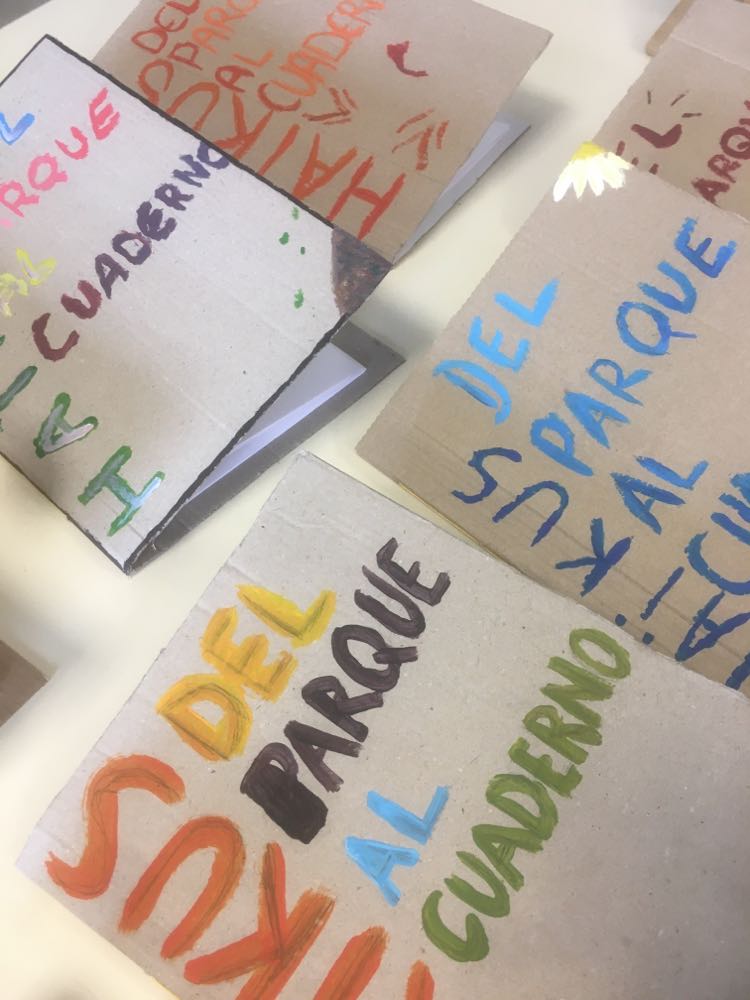 HAIKUS
DEL
PARQ
AL
CUADERN
HAI
L
RQUE
AL
CUADERNO
EL
ARQU
AiKUS
DEL
PARQUE
AL
CU
IKUS
DEL
PARQUE
AL
CUADERNO